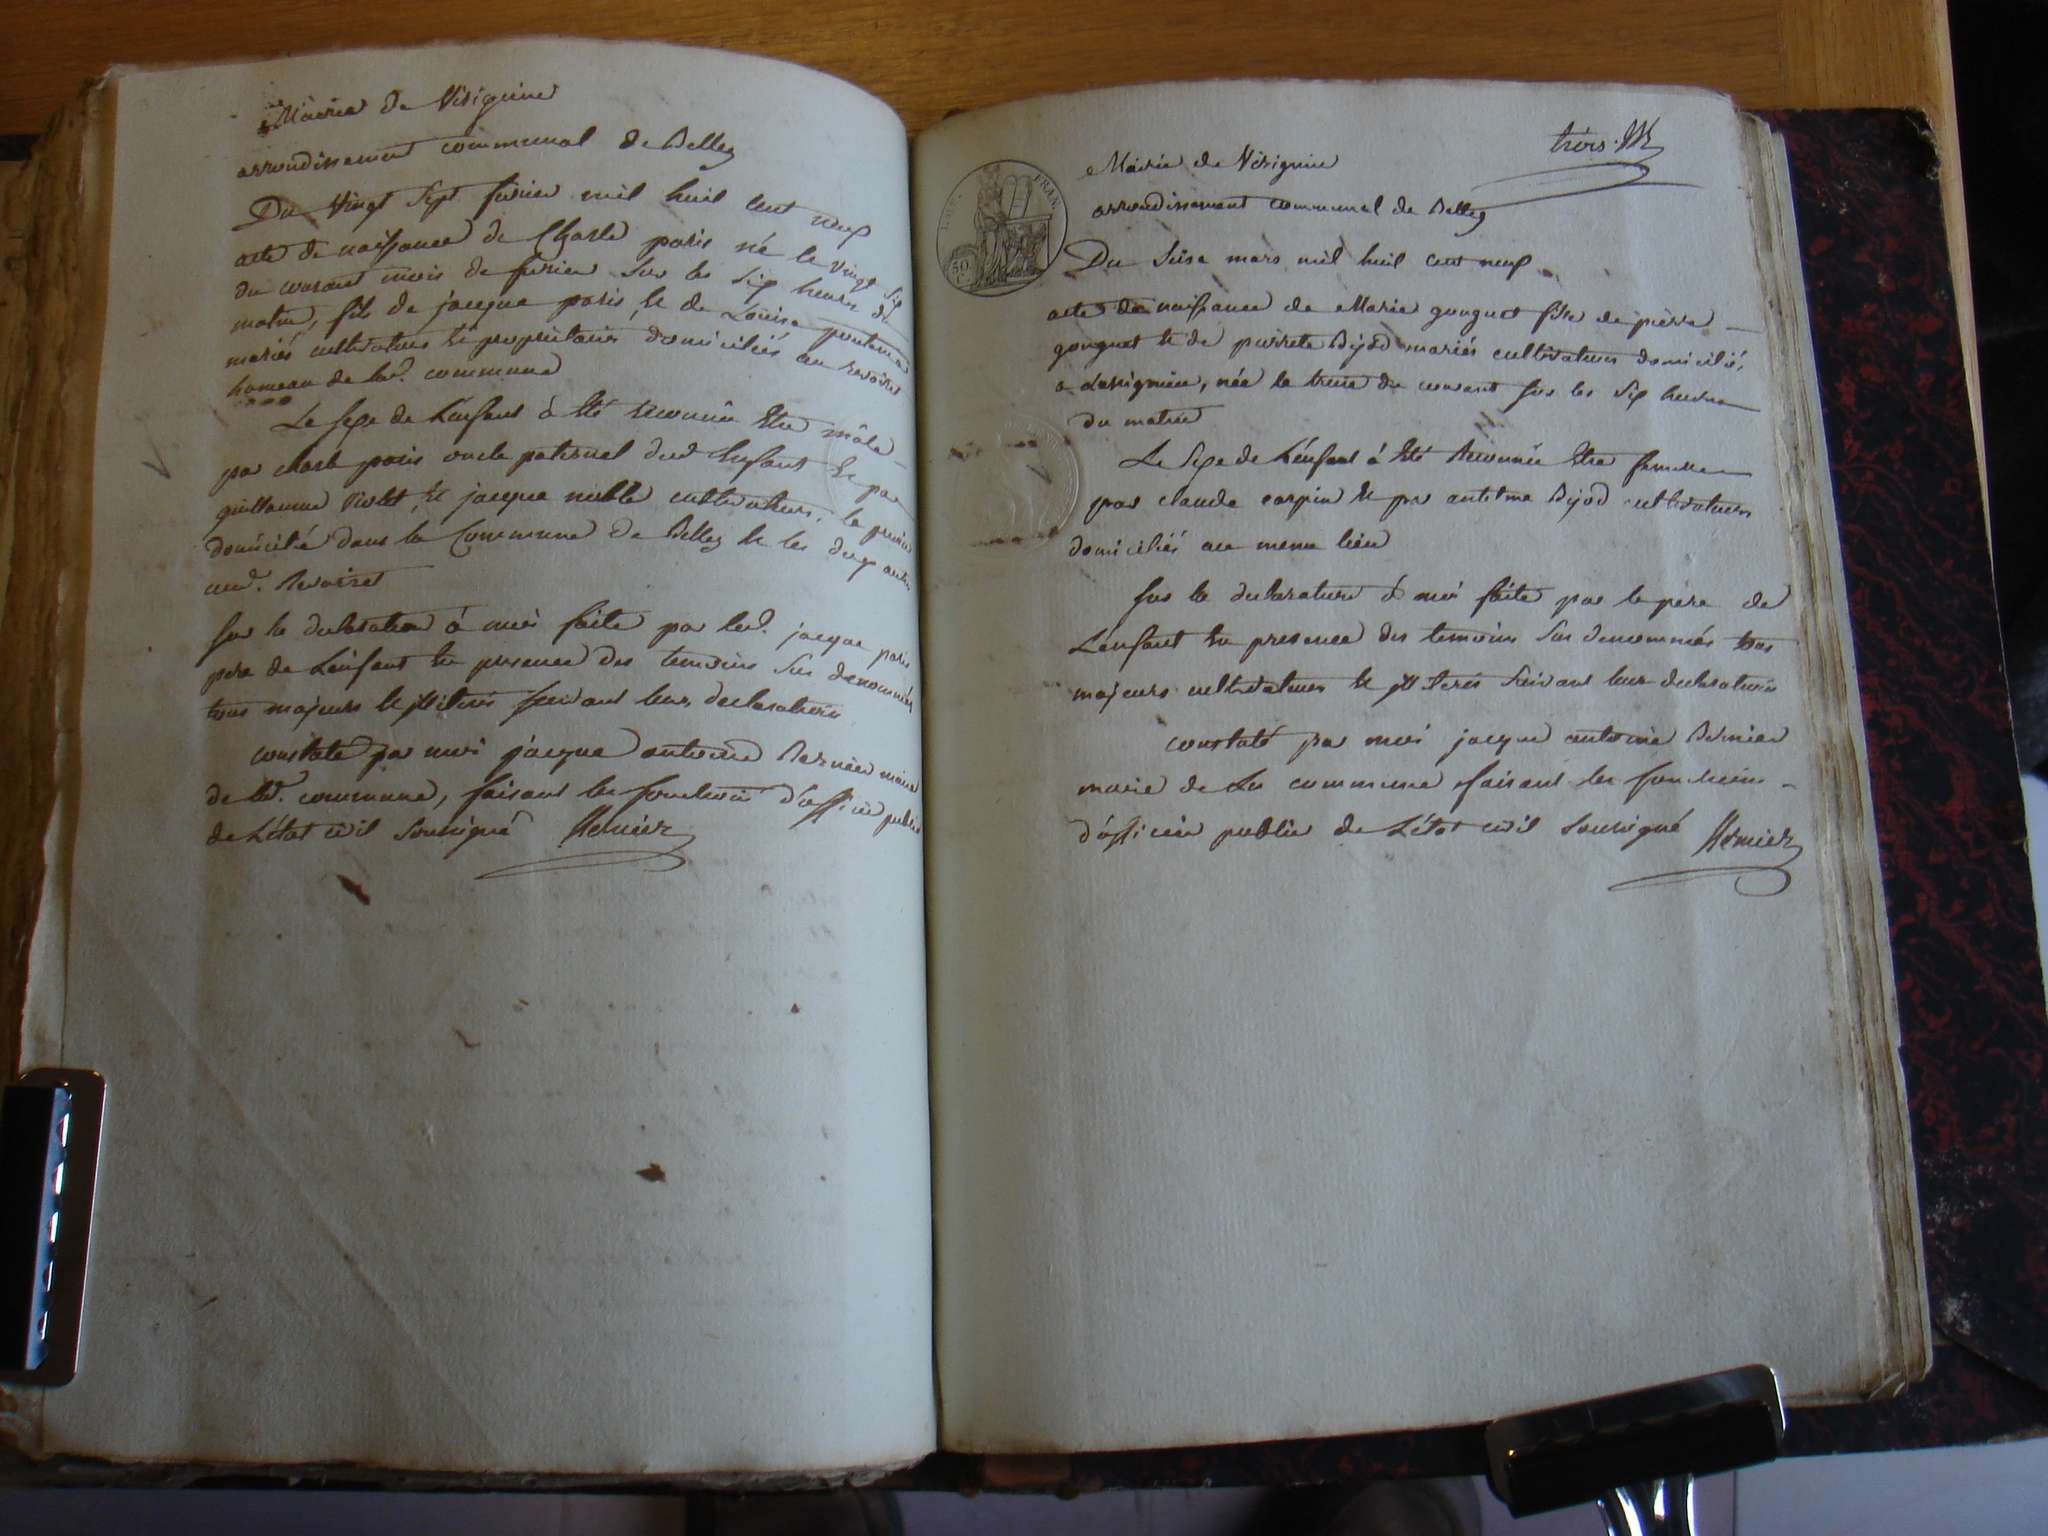 Mairie de Virignin
arrondissement communal de Belley
Du vingt sept fevrier mil huit cent neuf
acte de naissance de Charle paris né le vingt six
du courant mois de fevrier sur les six heures du
matin, fils de jacque paris, et de Louise
mariés cultivateurs et proprietaires domiciliés au revoiret
hameau de lad. commune
Le sexe de L'enfant à été reconnu être mâle
par charle paris oncle paternel dud. Enfant et par
guillaume violet, et jacque cultivateurs, le premier
domicilié dans la Commune de Belley et les deux autres
aud. Revoiret
sur la declaration à moi faite par led. jacque paris
pere de L'enfant en presence des temoins sus denommés
tous majeurs et illiterés suivant leur declaration
constaté par moi jacque antoine Bernier maire
de lad. commune, faisant les fonctions d'officier public
de L'état civil soussigné Bernier
trois
Mairie de Virignin
arrondissement communal de Belley
Du seise mars mil huit cent neuf
acte de naissance de Marie gouguet fille de pierre
gouguet et de pierrete Bijod mariés cultivateurs domiciliés
a , née le treise du courant sur les six heures
du matin
Le sexe de L'enfant à été reconnue être femelle
par claude carpin et par antelme Bijod cultivateurs
domiciliés au meme lieu
sur la declaration à moi faite par le père de
L'enfant en presence des temoins sus denommés tous
majeurs cultivateurs et illiterés suivant leur declaration
constaté par moi jacque antoine Bernier
maire de la commune faisant les fonctions
d'officier public de L'état civil soussigné Bernier
50